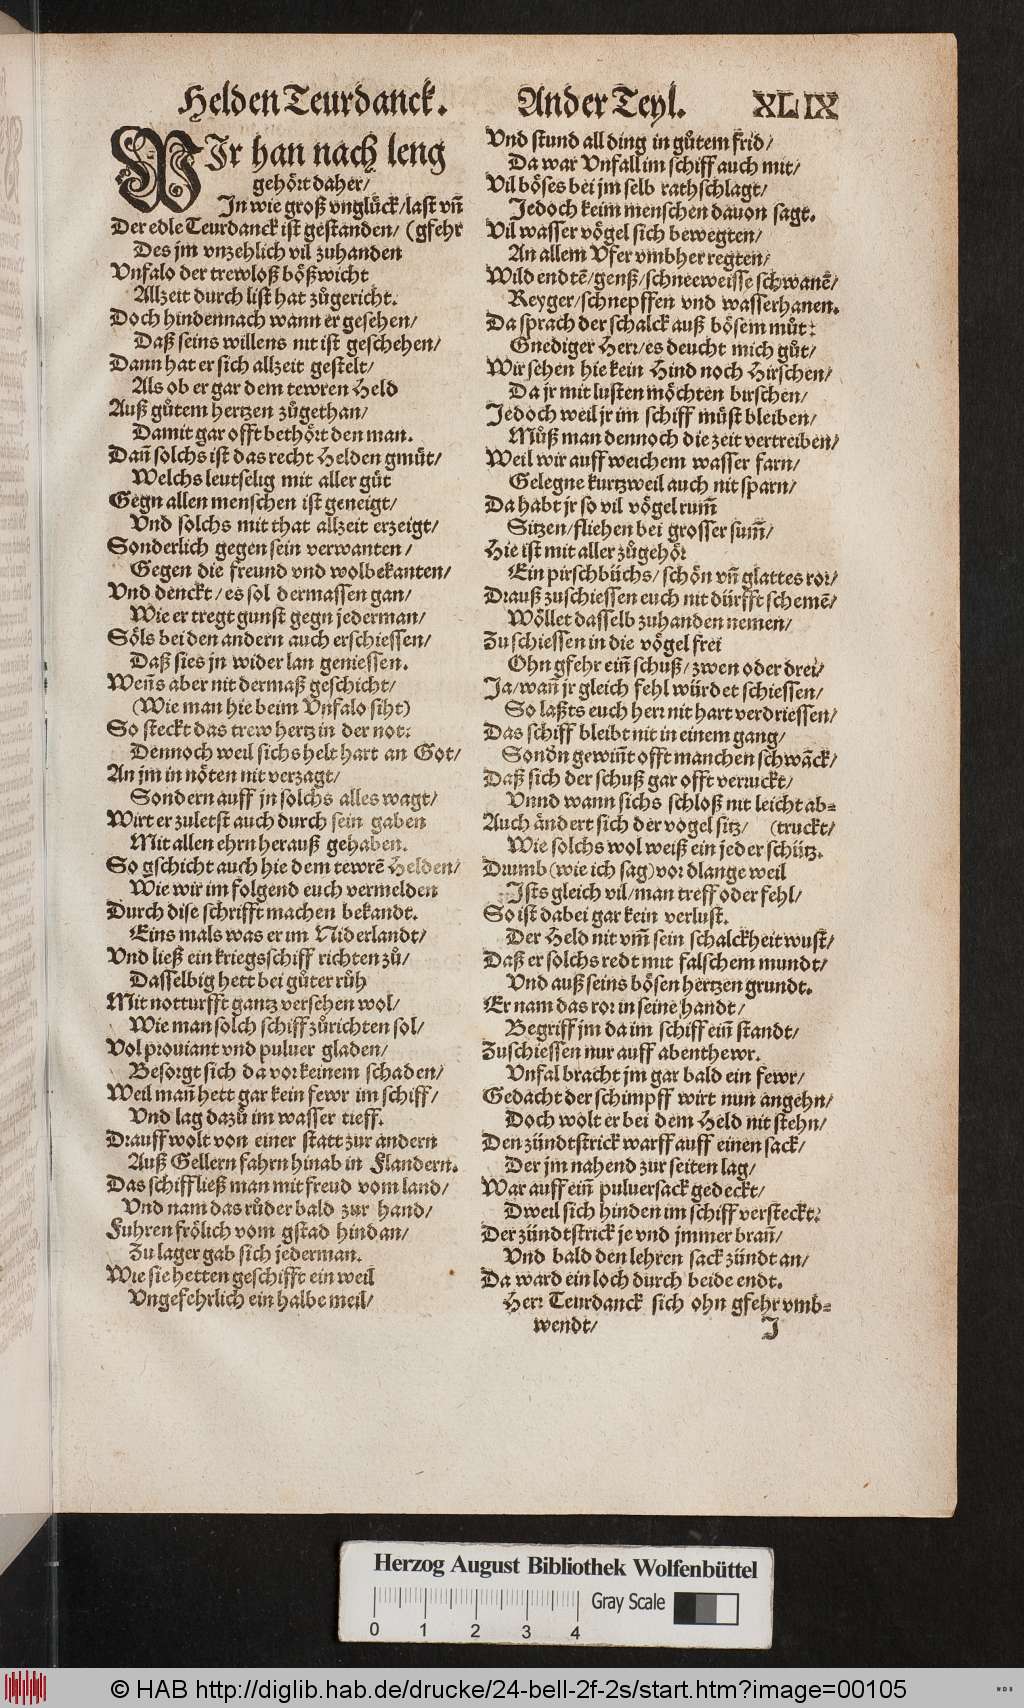 Helden Teurdanck. Ander Teyl. XLIX
WIr han nach leng
gehört daher/
In wie groß vnglück/last vn̄
Der edle Teurdanck ist gestanden/ (gfehr
Des jm vnzehlich vil zuhanden
Vnfalo der trewloß bößwicht
Allzeit durch list hat zůgericht.
Doch hindennach wann er gesehen/
Daß seins willens nit ist geschehen/
Dann hat er sich allzeit gestelt/
Als ob er gar dem tewren Held
Auß gůtem hertzen zůgethan/
Damit gar offt bethört den man.
Dan̄ solchs ist das recht Helden gmüt/
Welchs leutselig mit aller güt
Gegn allen menschen ist geneigt/
Vnd solchs mit that allzeit erzeigt/
Sonderlich gegen sein verwanten/
Gegen die freund vnd wolbekanten/
Vnd denckt/es sol dermassen gan/
Wie er tregt gunst gegn jederman/
Söls bei den andern auch erschiessen/
Daß sies jn wider lan geniessen.
Wen̄s aber nit dermaß geschicht/
(Wie man hie beim Vnfalo siht)
So steckt das trew hertz in der not:
Dennoch weil sichs helt hart an Got/
An jm in nöten nit verzagt/
Sondern auff jn solchs alles wagt/
Wirt er zuletst auch durch sein gaben
Mit allen ehrn herauß gehaben.
So gschicht auch hie dem tewrē Helden/
Wie wir im folgend euch vermelden
Durch dise schrifft machen bekandt.
Eins mals was er im Niderlandt/
Vnd ließ ein kriegsschiff richten zů/
Dasselbig hett bei gůter růh
Mit notturfft gantz versehen wol/
Wie man solch schiff zůrichten sol/
Vol prouiant vnd puluer gladen/
Besorgt sich da vor keinem schaden/
Weil man̄ hett gar kein fewr im schiff/
Vnd lag dazů im wasser tieff.
Drauff wolt von einer statt zur andern
Auß Gellern fahrn hinab in Flandern.
Das schiff ließ man mit freud vom land/
Vnd nam das růder bald zur hand/
Fuhren frölich vom gstad hindan/
Zu lager gab sich jederman.
Wie sie hetten geschifft ein weil
Vngefehrlich ein halbe meil/
Vnd stund all ding in gůtem frid/
Da war Vnfall im schiff auch mit/
Vil böses bei jm selb rathschlagt/
Jedoch keim menschen dauon sagt.
Vil wasser vögel sich bewegten/
An allem Vfer vmbher regten/
Wild endtē/genß/schneeweisse schwanē/
Reyger/schnepffen vnd wasserhanen.
Da sprach der schalck auß bösem můt:
Gnediger Herr/es deucht mich gůt/
Wir sehen hie kein Hind noch Hirschen/
Da jr mit lusten möchten birschen/
Jedoch weil jr im schiff müst bleiben/
Můß man dennoch die zeit vertreiben/
Weil wir auff weichem wasser farn/
Gelegne kurtzweil auch nit sparn/
Da habt jr so vil vögel rum̄
Sitzen/fliehen bei grosser sum̄/
Hie ist mit aller zůgehör
Ein pirschbüchs/schön vn̄ glattes ror/
Drauß zuschiessen euch nit dürfft schemē/
Wöllet dasselb zuhanden nemen/
Zu schiessen in die vögel frei
Ohn gfehr ein̄ schuß/zwen oder drei/
Ja/wan̄ jr gleich fehl würdet schiessen/
So laßts euch herr nit hart verdriessen/
Das schiff bleibt nit in einem gang/
Sondn gewin̄t offt manchen schwāck/
Daß sich der schuß gar offt verruckt/
Vnnd wann sichs schloß nit leicht ab-
Auch ändert sich der vogel sitz/ (truckt/
Wie solchs wol weiß ein jeder schütz.
Drumb (wie ich sag) vor dlange weil
Ists gleich vil/man treff oder fehl/
So ist dabei gar kein verlust.
Der Held nit vm̄ sein schalckheit wust/
Daß er solchs redt mit falschem mundt/
Vnd auß seins bösen hertzen grundt.
Er nam das ror in seine handt/
Begriff jm da im schiff ein̄ standt/
Zuschiessen nur auff abenthewr.
Vnfal bracht jm gar bald ein fewr/
Gedacht der schimpff wirt nun angehn/
Doch wolt er bei dem Held nit stehn/
Den zündtstrick warff auff einen sack/
Der jm nahend zur seiten lag/
War auff ein̄ puluersack gedeckt/
Dweil sich hinden im schiff versteckt:
Der zündtstrick je vnd jmmer bran̄/
Vnd bald den lehren sack zündt an/
Da ward ein loch durch beide endt.
Herr Teurdanck sich ohn gfehr vmb-
wendt/ I
Herzog August Bibliothek Wolfenbüttel
0 1 2 3 4 Gray Scale
© HAB http://diglib.hab.de/drucke/24-bell-2f-2s/start.htm?image=00105